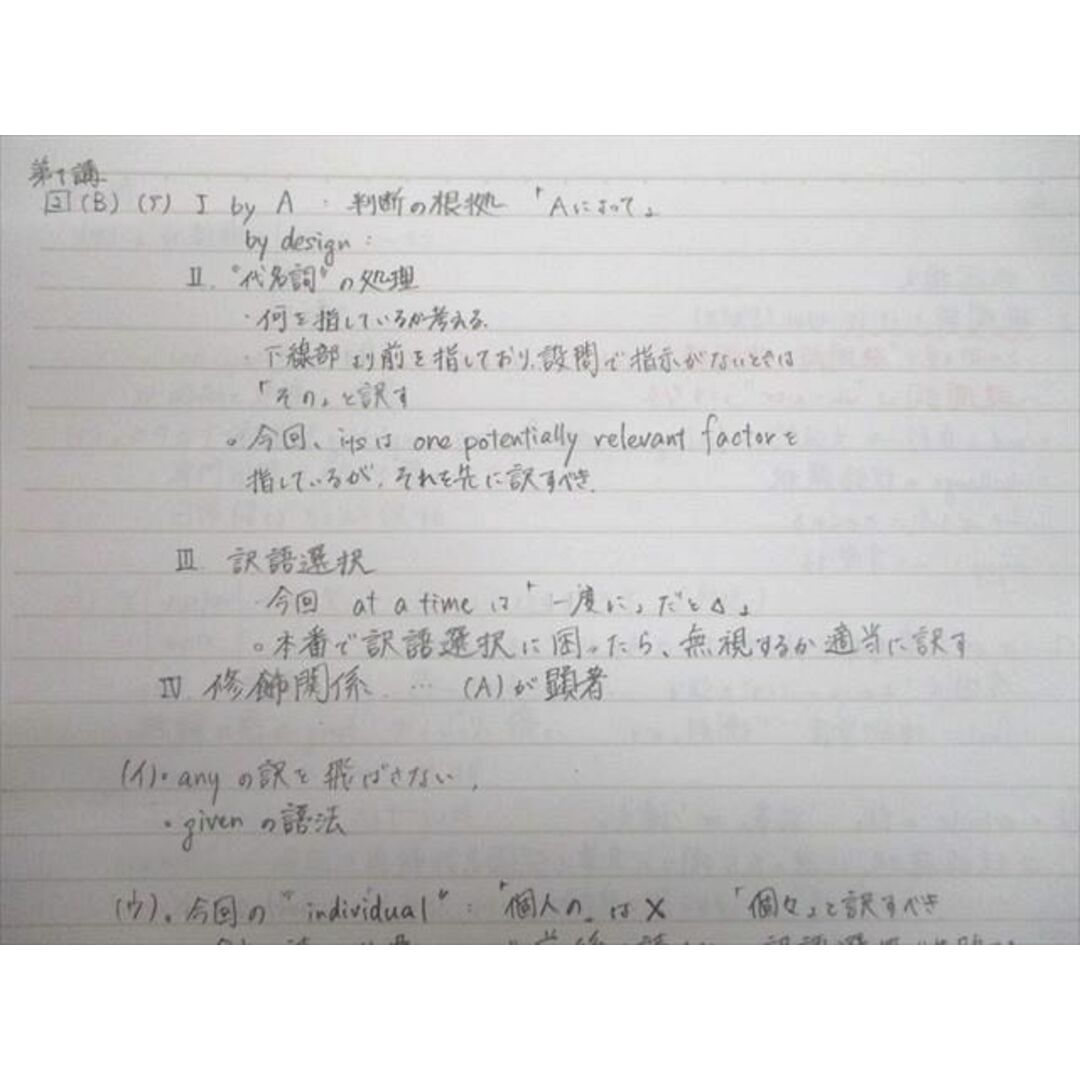 第1講
2 (B) (ア) I by A : 判断の根拠 「Aによって」
by design :
II. "代名詞" の処理
・何を指しているか考える.
・下線部より前を指しており、設問で指示がないときは
「その」と訳す
○ 今回、itsは one potentially relevant factorを
指しているが、それを先に訳すべき.
III 訳語選択
・今回 at a time は「一度に」だと△」
○本番で訳語選択に困ったら、無視するか適当に訳す
IV 修飾関係 … (A)が顕著
(イ)・any の訳を飛ばさない.
・given の語法
(ウ)。今回の "individual" : 「個人の」は× 「個々」と訳すべき